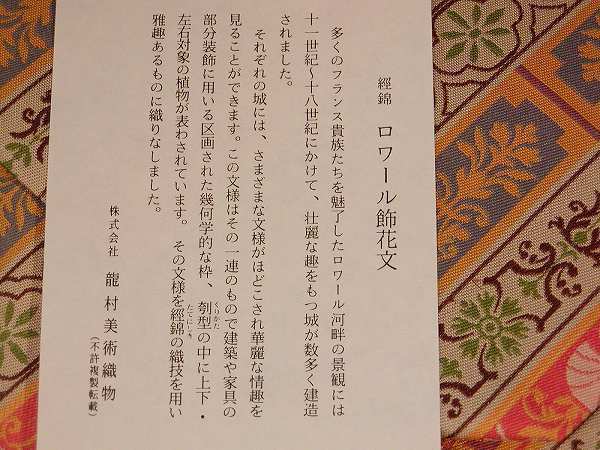 經錦 ロワール飾花文
多くのフランス貴族たちを魅了したロワール河畔の景観には
十一世紀〜十八世紀にかけて、壮麗な趣をもつ城が数多く建造
されました。
それぞれの城には、さまざまな文様がほどこされ華麗な情趣を
見ることができます。この文様はその一連のもので建築や家具の
部分装飾に用いる区画された幾何学的な枠、刳型の中に上下・
くりかた
左右対象の植物が表わされています。 その文様を經錦の織技を用い
たてにしき
雅趣あるものに織りなしました。
株式会社 龍村美術織物
(不許複製転載)